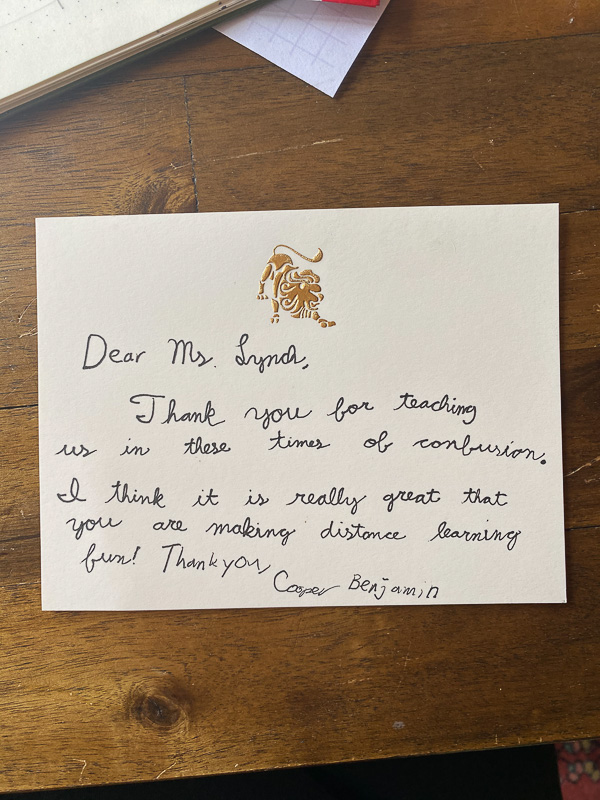 Dear Ms. Lynch,
Thank you for teaching
us in these times of confusion.
I think it is really great that
you are making distance learning
fun! Thank you,
Cooper Benjamin